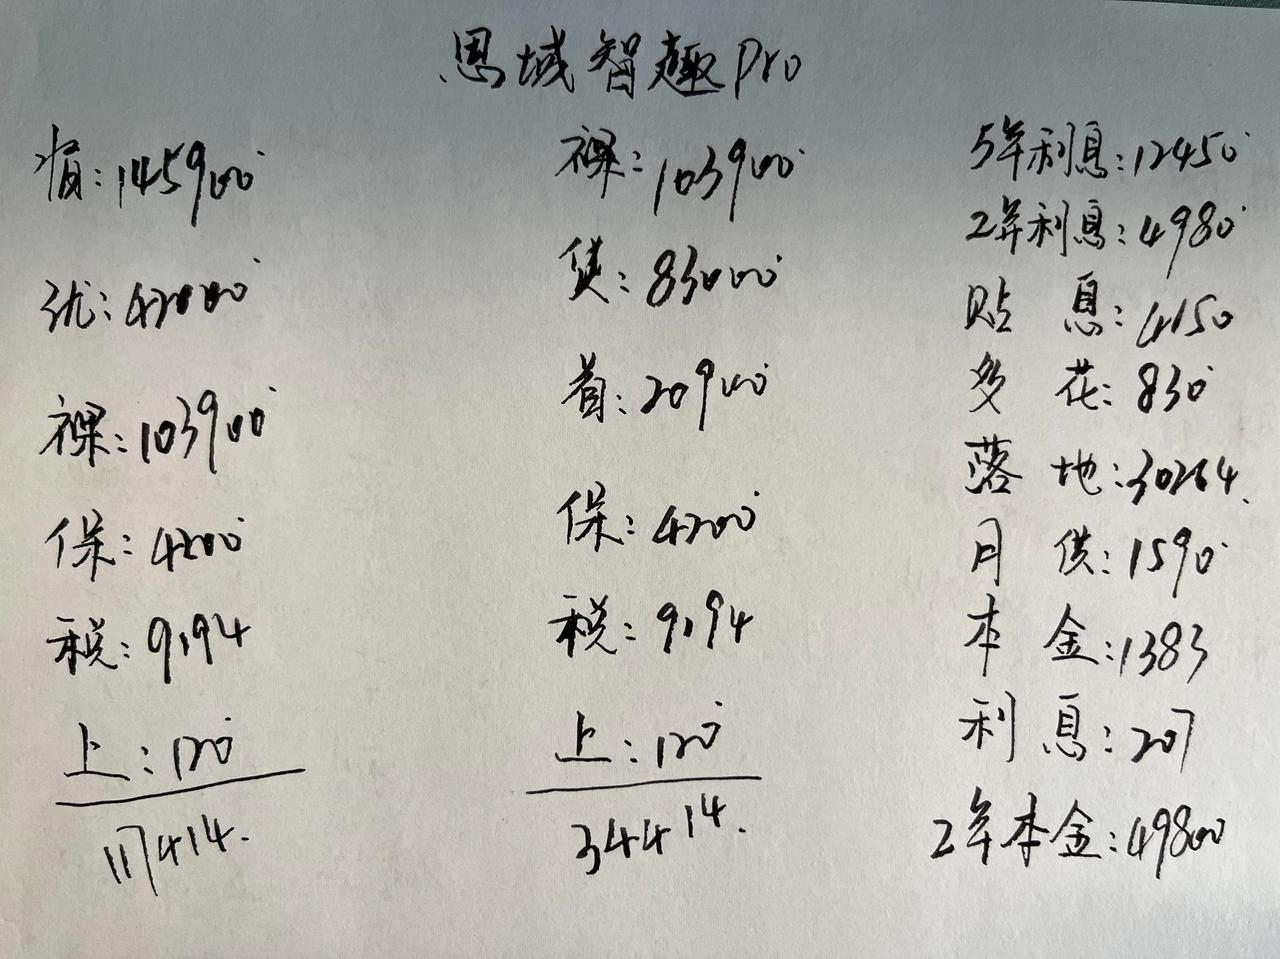 思域智趣Pro
指:145900
优:42000
裸:103900
保:4200
税:9194
上:120
117414.
裸:103900
贷:83000
首:20900
保:4200
税:9194
上:120
34414.
5年利息:12450
2年利息:4980
贴息:4150
多花:830
落地:30264.
月供:1590
本金:1383
利息:207
2年本金:49800